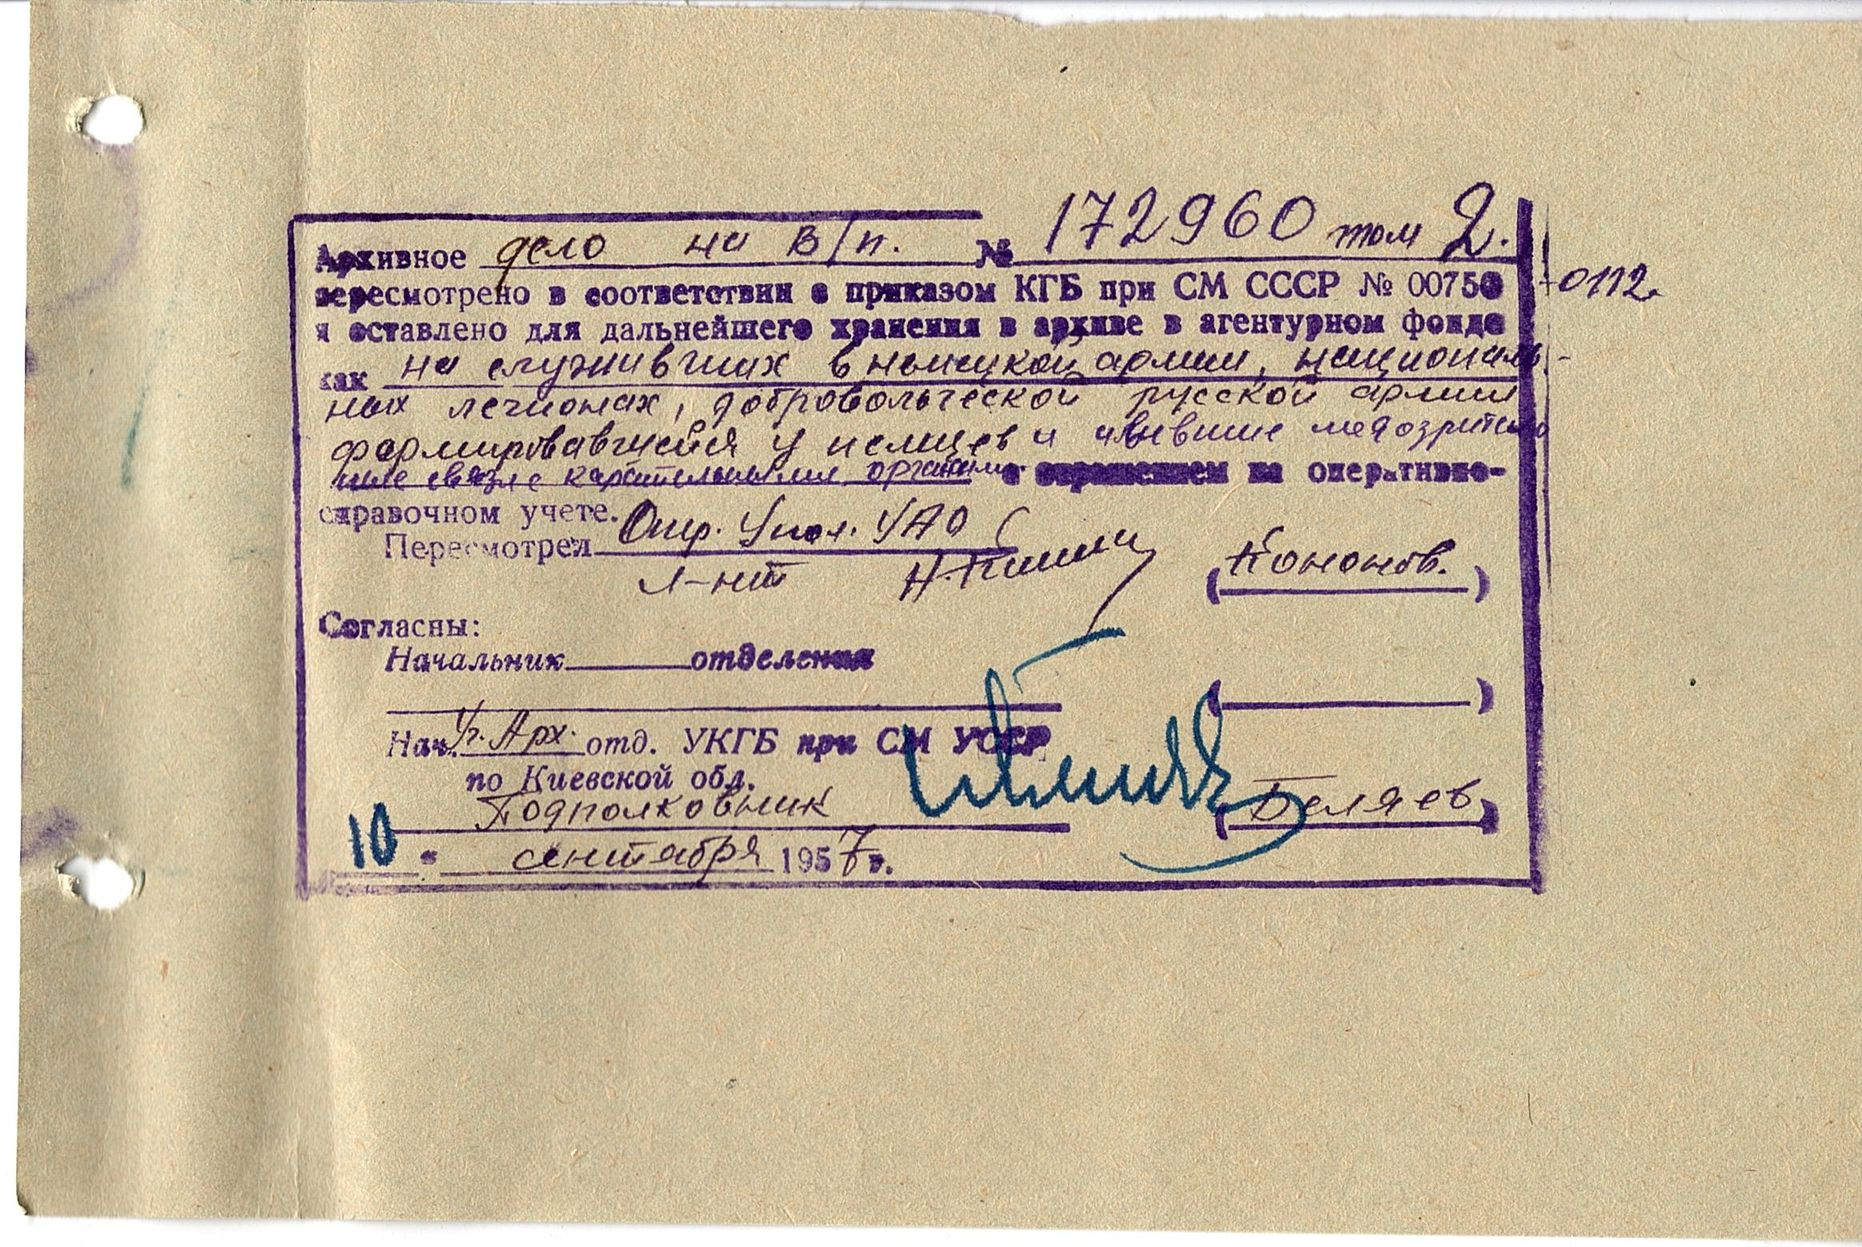 Архивное дело на в/п. № 172960 том 2.
пересмотрено в соответствии с приказом КГБ при СМ СССР № 00750 -0112
и оставлено для дальнейшего хранения в архиве в агентурном фонде
как на служивших в немецкой армии, националь-
ных легионах, добровольческой русской армии
формировавшейся у немцев и имевшие подозритель
ные связи с карательными органами с оперативно-
справочном учете.
Пересмотрел Опер. Упол. УАО
л-нт (Кононов.)
Согласны:
Начальник отделения
Нач. Уч. Арх. отд. УКГБ при СМ УССР
по Киевской обл.
Подполковник (Беляев)
10 " сентября 1957 г.